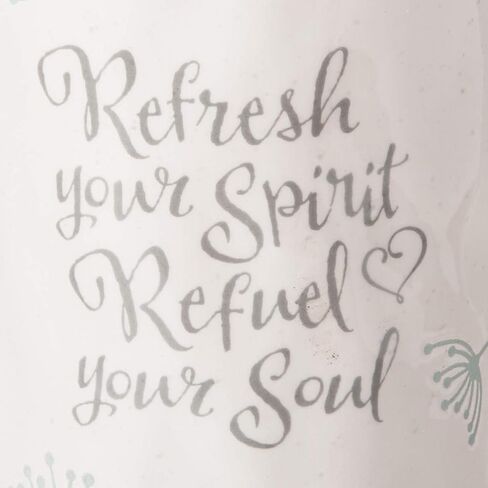 Refresh
your Spirit
Refuel
your Soul